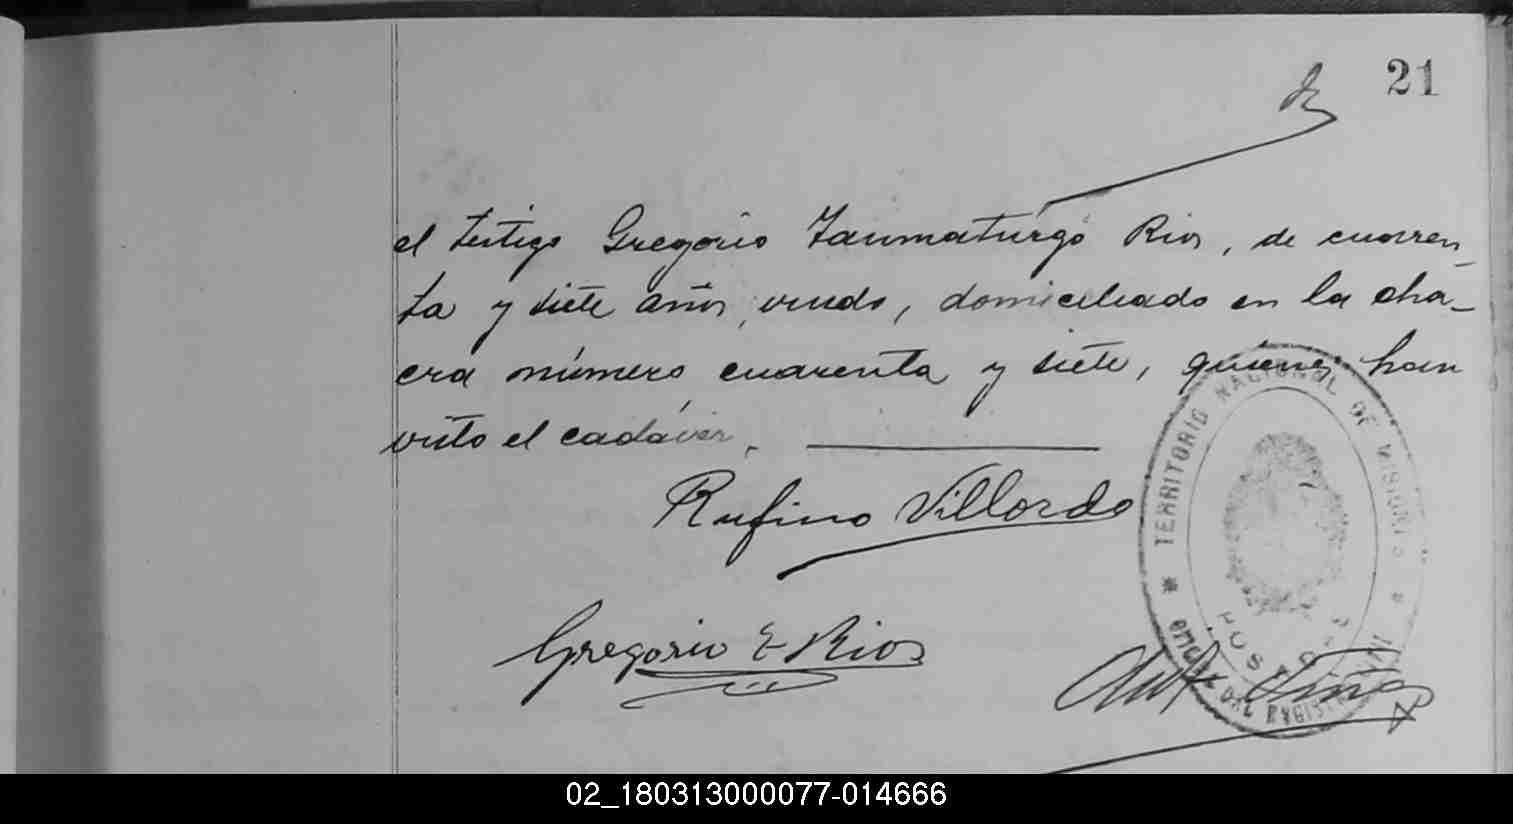 21
el testigo Gregorio Taumaturgo Rios, de cuaren_
ta y siete años, viudo, domiciliado en la cha_
cra número cuarenta y siete, quienes han
visto el cadáver.
Rufino Villordo
Gregorio E Rios
* TERRITORIO NACIONAL DE MISIONES *
POSADAS
OFICINA DEL REGISTRO CIVIL
02_180313000077-014666